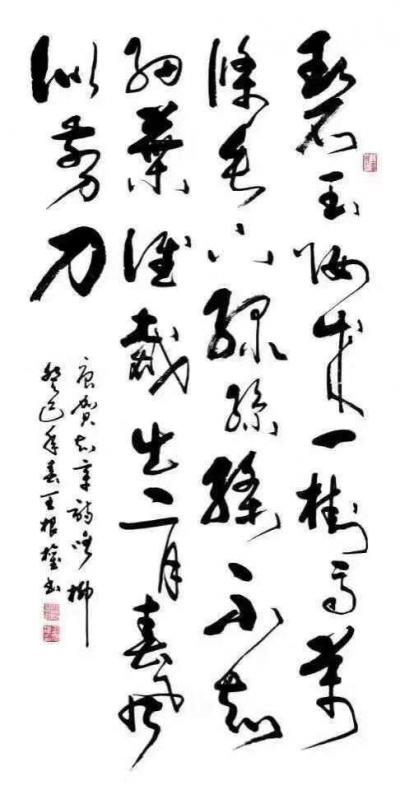 碧玉妝成一樹高萬
條垂下綠絲絛不知
細葉誰裁出二月春風
似剪刀
唐賀知章詩詠柳
癸巳年春王根權书